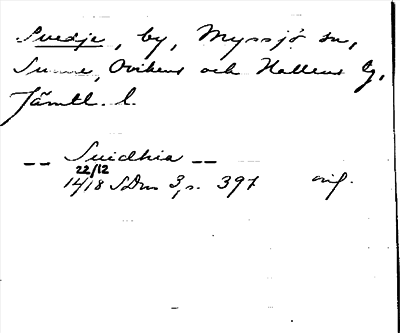 Svedje, by, Myssjö sn,
Sunne, Ovikens och Hallens tg,
Jämtl. l.
-- Suidhia --
22/12
1418 SDm 3, s. 397 orig.